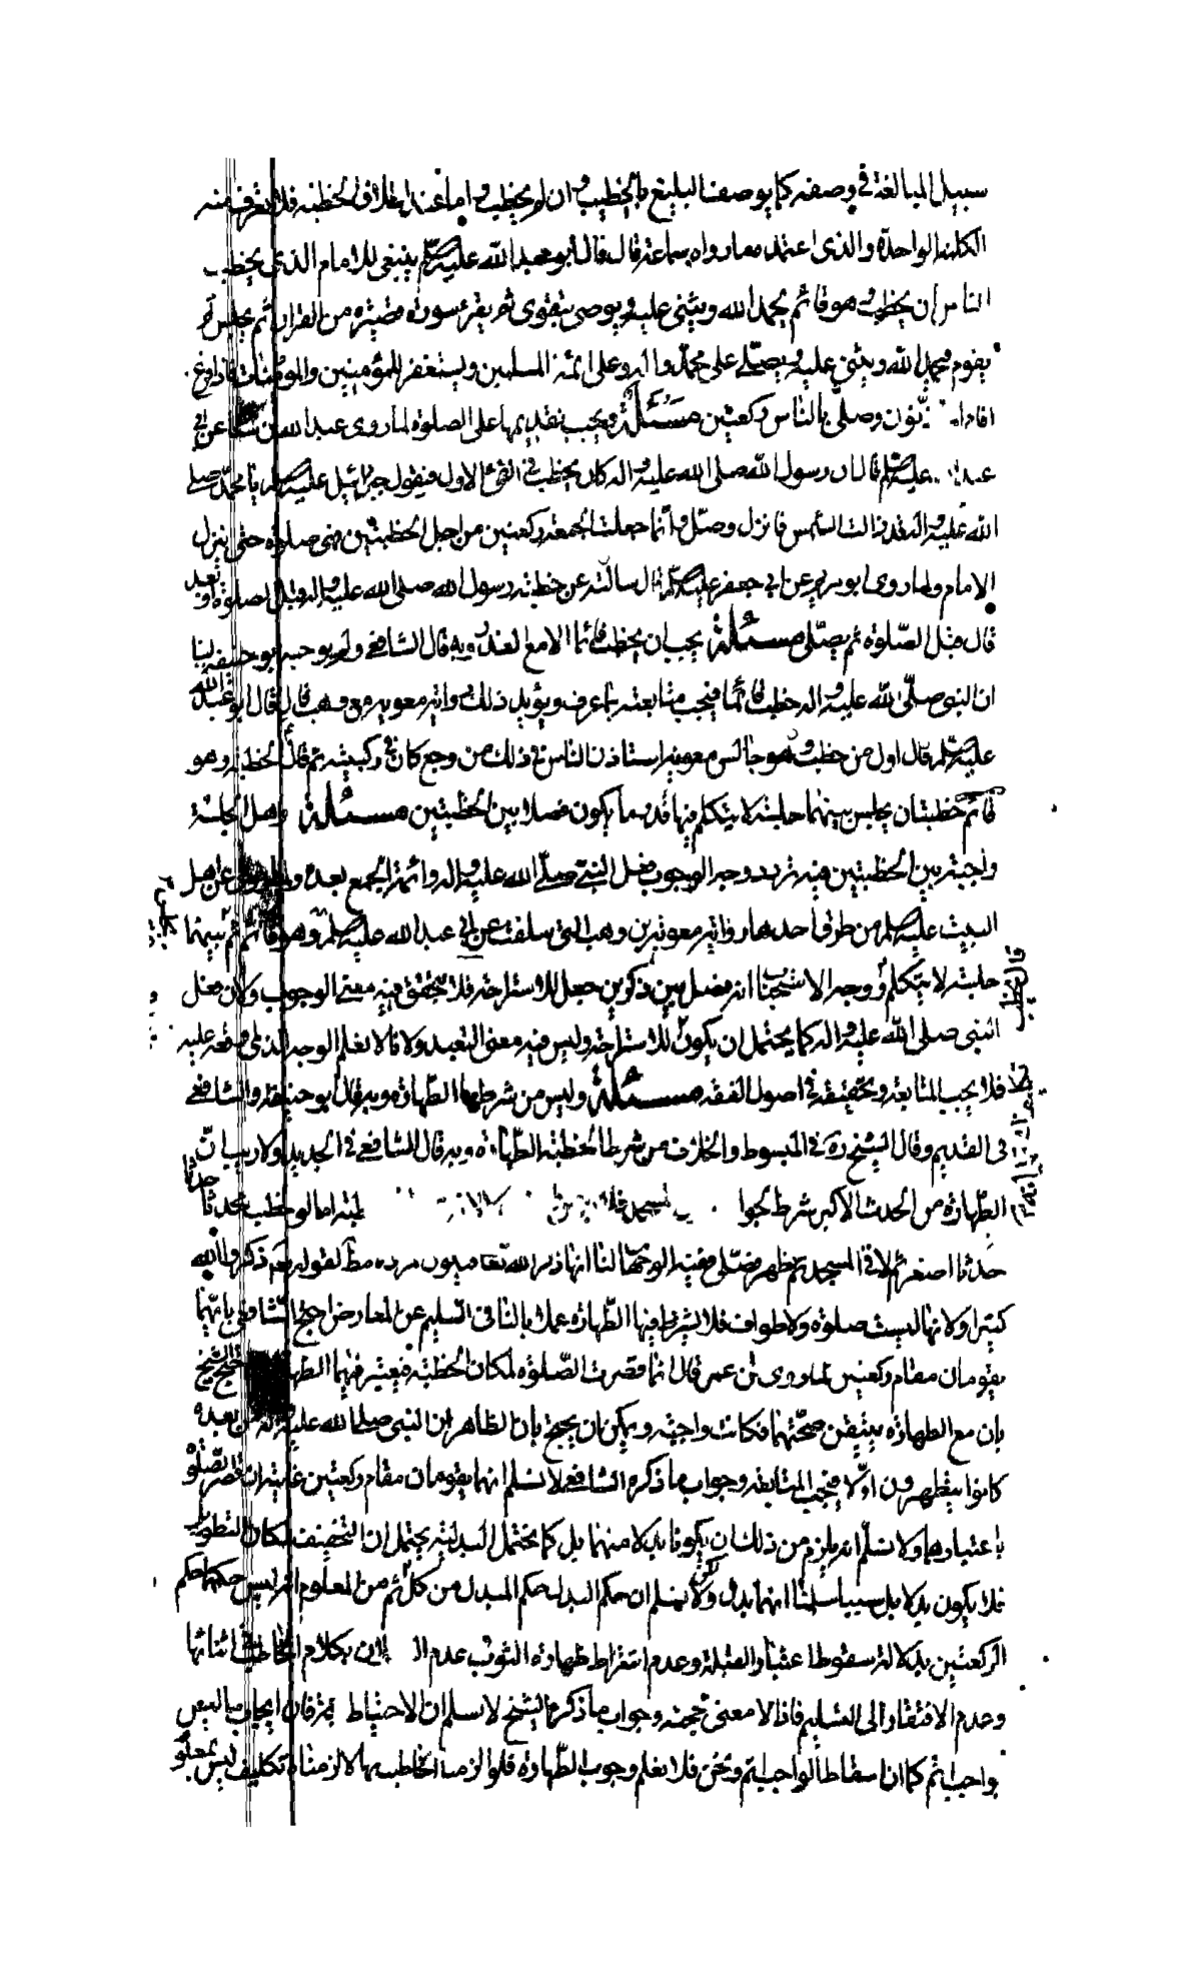 سبيل المبالغة في وصفه كما يوصف البليغ بالخطيب وان لم يخطب واما عند اطلاق الخطبة فلا يعرف منه
الكلمة الواحدة والذى اعتمد معما رواه سماعة قال قال ابو عبد الله عليه السلم ينبغى للامام الذى يخطب
الناس ان يخطب وهو قائم يحمد الله ويثنى عليه ويوصى بتقوى ثم يقرء سورة قصيرة من القران ثم يجلس ثم
يقوم فيحمد الله ويثنى عليه ويصلى على محمد واله وعلى ائمة المسلمين ويستغفر للمؤمنين والمؤمنات فاذا فرغ
اقام المؤذن وصلى بالناس ركعتين مسئلة ويجب تقديمها على الصلوة لما روى عبد الله بن سنان عن ابى
عبد الله عليه السلم قال ان رسول الله صلى الله عليه واله كان يخطب في الفئ الاول فيقول جبرائيل عليه السلم يا محمد صلى
الله عليه واله قد زالت الشمس فانزل وصل وانما جعلت الجمعة ركعتين من اجل الخطبتين فهى صلوة حتى ينزل
الامام ولما روى ابو مريم عن ابى جعفر عليه السلم قال سالته عن خطبة رسول الله صلى الله عليه واله قبل الصلوة او بعد
قال قبل الصلوة ثم يصلى مسئلة يجب ان يخطب قائما الا مع العذر وبه قال الشافعى ولم يوجبه ابو حنيفة لنا
ان النبى صلى الله عليه واله خطب قائما فيجب متابعته بما عرف ويؤيد ذلك رواية معوية بن وهب قال قال ابو عبد الله
عليه السلم قال اول من خطب وهو جالس معوية استاذن الناس في ذلك من وجع كان في ركبتيه ثم قال الخطبة وهو
قائم خطبتان يجلس بينهما جلسة لا يتكلم فيها قدر ما يكون فصلا بين الخطبتين مسئلة وهل الجلسة
واجبة بين الخطبتين فيه تردد وجه الوجوب فعل النبى صلى الله عليه واله وائمة الجمع بعده عن اهل
البيت عليهم السلم من طرق احدها رواية معوية بن وهب التى سلفت عن ابى عبد الله عليه السلم وهو قائم ثم بينهما
جلسة لا يتكلم ووجه الاستحباب انه فصل بين ذكرين جعل للاستراحة فلا يتحقق فيه معنى الوجوب ولان فعل
النبى صلى الله عليه واله كما يحتمل ان يكون للاستراحة وليس فيه معنى التعبد ولانا لا نعلم الوجه الذى فعله عليه
فلا يجب المتابعة وتحقيقه في اصول الفقه مسئلة وليس من شرطهما الطهارة وبه قال ابو حنيفة والشافعى
في القديم وقال الشيخ ره في المبسوط والخلاف من شرط الخطبة الطهارة وبه قال الشافعى في الجديد ولا ريب ان
الطهارة من الحدث الاكبر شرط لجوا المسجد فلا اما لو خطب محدثا حدثا
حدثا اصغر ثم لا في المسجد ثم تطهر وصلى ففيه الوجهان لنا انها ذكر الله تعا فيكون مرده مطلقا لقوله تعم اذكروا الله
كثيرا ولانها ليست صلوة ولا طواف فلا يشترط فيها الطهارة عملا بالنافى السليم عن المعارض احتج الشافعى بانهما
يقومان مقام ركعتين لما روى عن عمر قال انما قصرت الصلوة لمكان الخطبة فيعتبر فيهما الطهارة احتج الشيخ
بان مع الطهارة يتيقن صحتهما فكانت واجبة ويمكن ان يحتج بان الظاهر ان النبى صلى الله عليه واله ومن بعده
كانوا يتطهرون اولا فيجب المتابعة وجواب ما ذكره الشافعى لا نسلم انهما يقومان مقام ركعتين غايته ان قصر الصلوة
باعتبارهما ولا نسلم انه يلزم من ذلك ان يكونا بدلا منهما بل كما يحتمل البدلية يحتمل ان التخفيف لمكان التطويل
فلا يكون بدلا بل سببا سلمنا انهما بدل لكن ولا نسلم ان حكم البدل حكم المبدل من كل ثم من المعلوم انه ليس حكمها حكم
الركعتين بدلالة سقوط اعتبار القبلة وعدم اشتراط طهارة الثوب عدم ال بكلام الخاطب في اثنائها
وعدم الافتقار الى التسليم فاذا لا معنى لحجته وجواب ما ذكره الشيخ لا نسلم ان الاحتياط فان ايجاب ما ليس
بواجب اثم كما ان اسقاط الواجب اثم ونحن فلا نعلم وجوب الطهارة فلو الزمنا الخاطب بها لالزمناه تكليف ليس بمعلو